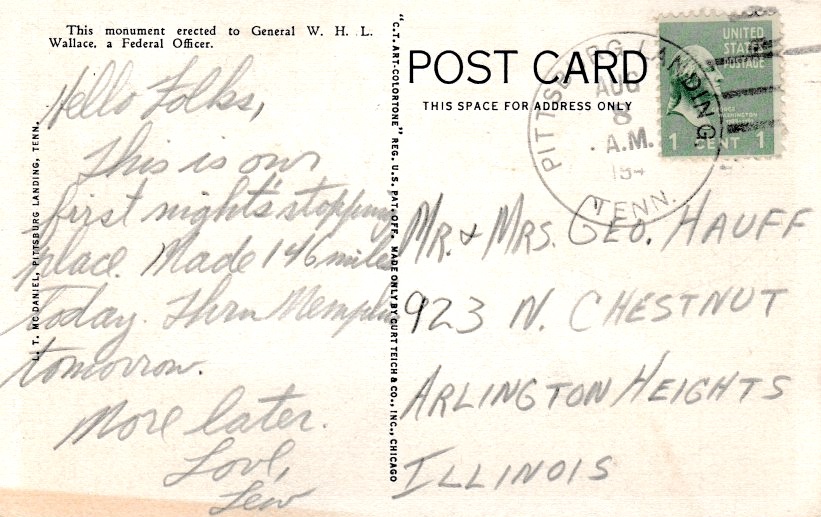 This monument erected to General W. H. L.
Wallace, a Federal Officer.
Hello Folks,
This is our
first night's stopping
place. Made 146 miles
today. Thru Memphis
tomorrow.
More later.
Love,
Lew
L. T. MC DANIEL, PITTSBURG LANDING, TENN.
"C.T. ART-COLORTONE" REG. U.S. PAT. OFF. MADE ONLY BY CURT TEICH & CO., INC., CHICAGO
POST CARD
THIS SPACE FOR ADDRESS ONLY
PITTSBURG LANDING
AUG
8
A.M.
194
TENN.
UNITED
STATES
POSTAGE
GEORGE
WASHINGTON
1 CENT 1
MR. & MRS. GEO. HAUFF
923 N. CHESTNUT
ARLINGTON HEIGHTS
ILLINOIS